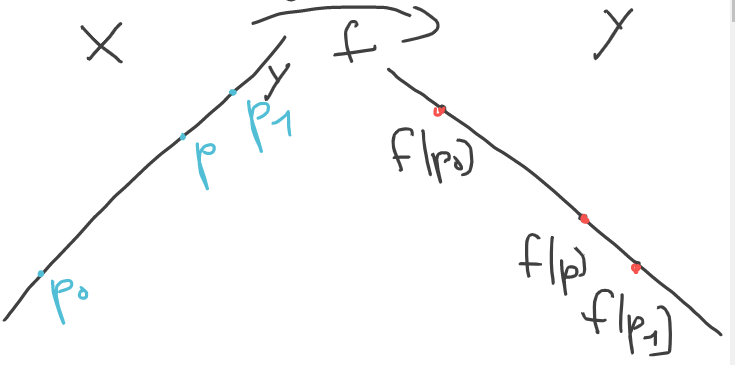 X
f
Y
y
p1
p
p0
f(p0)
f(p)
f(p1)